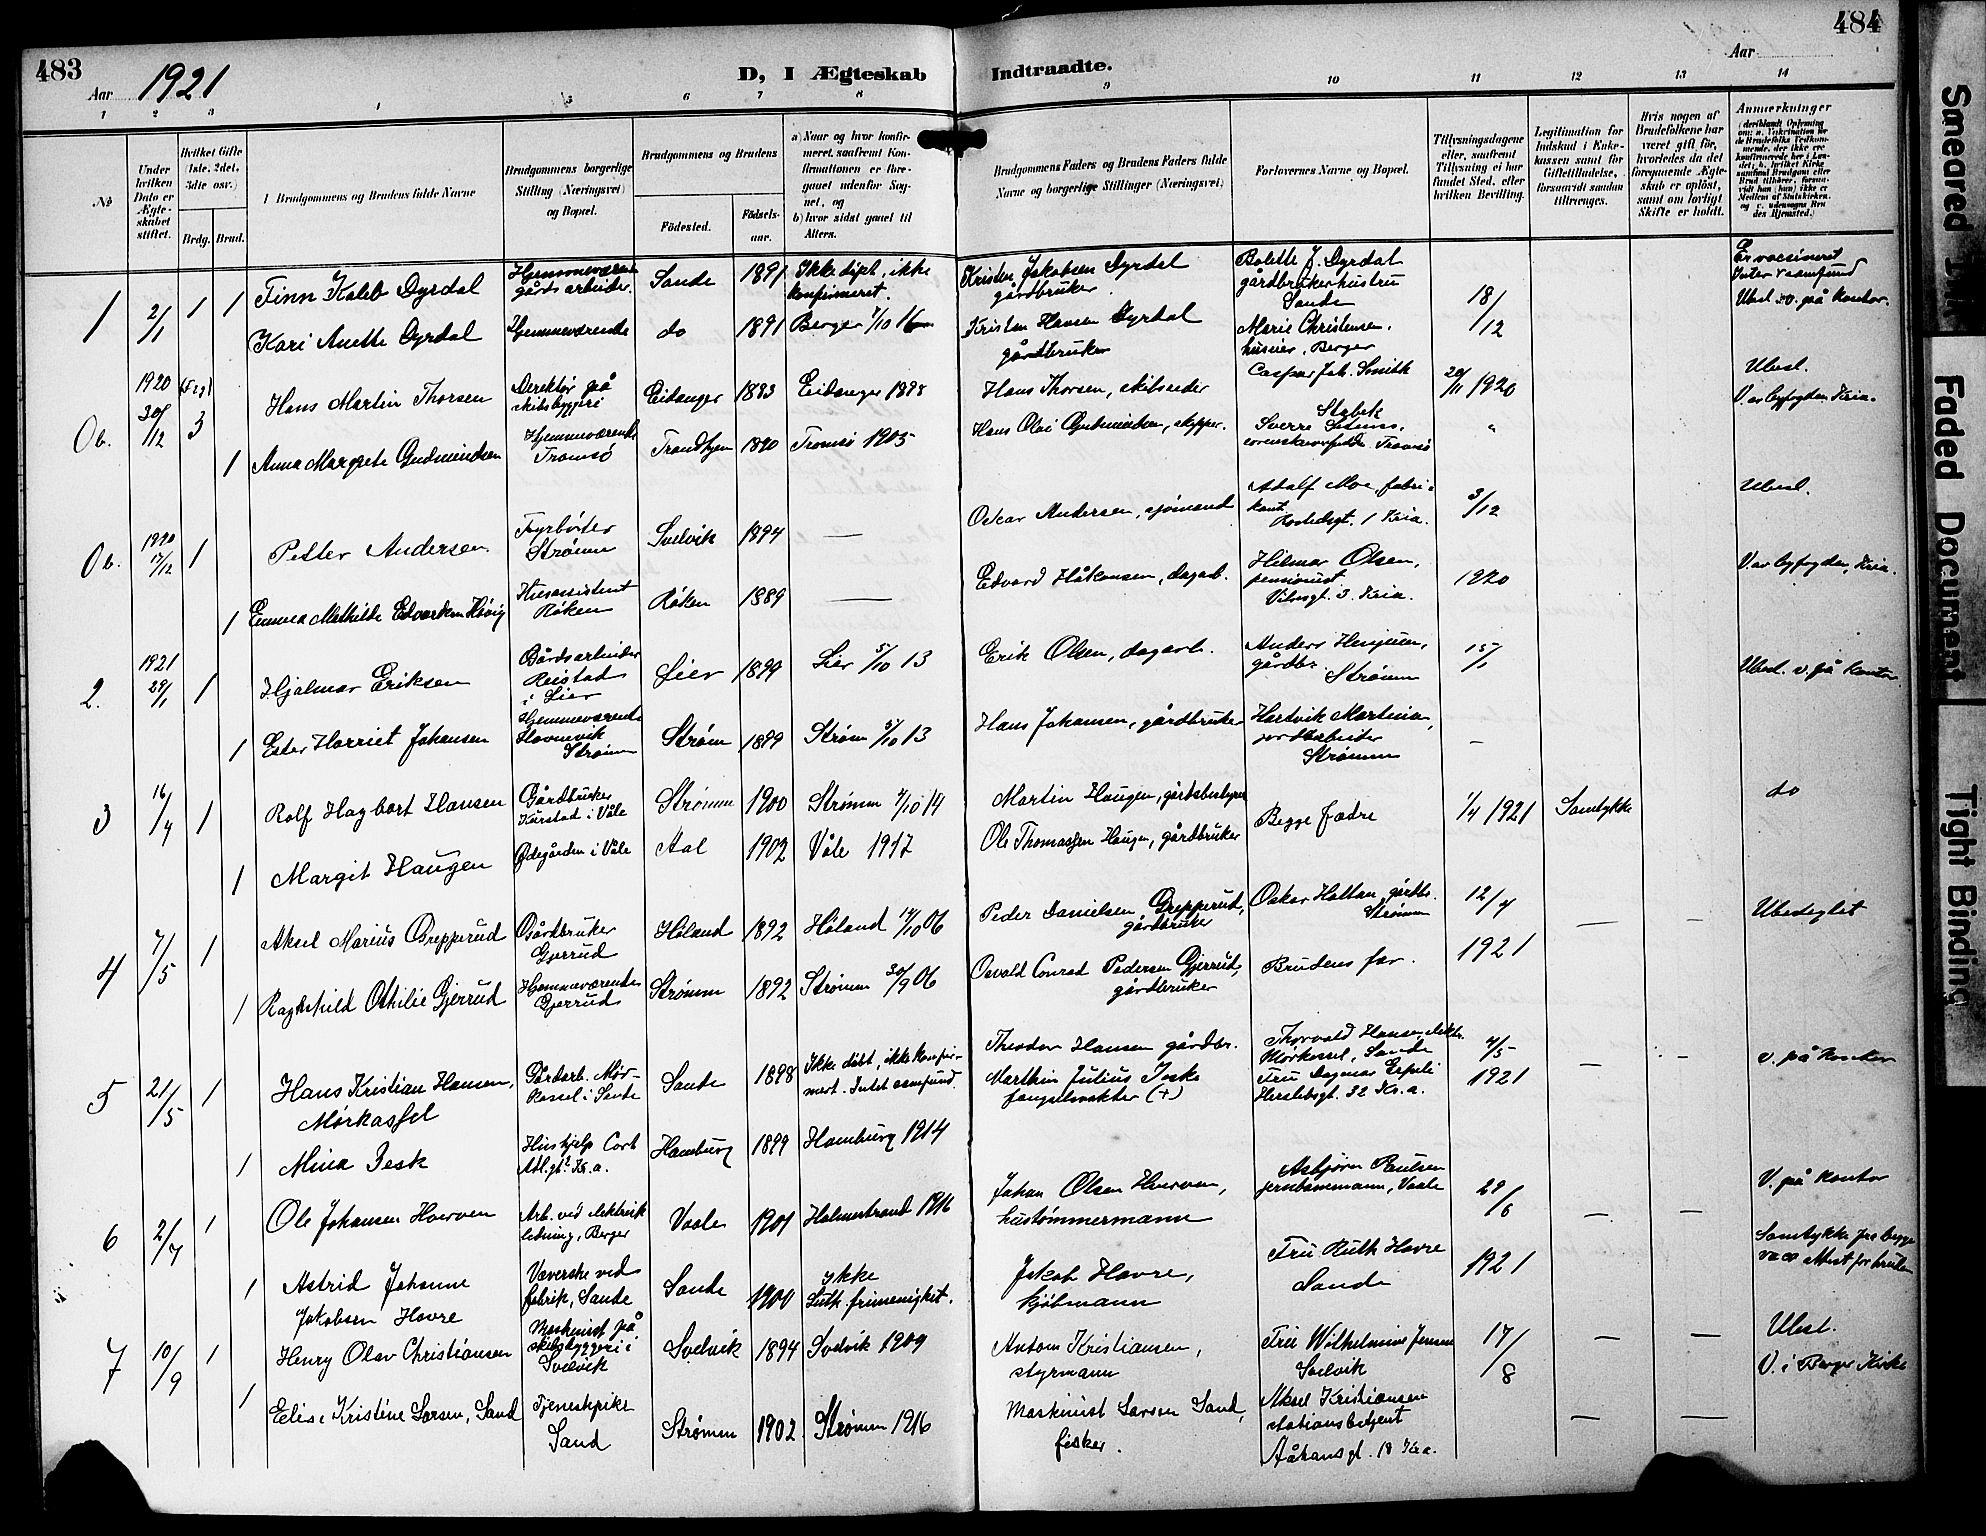 483
Aar 1921
D, I Ægteskab
Indtraadte.
Aar
484
1 2 3 4 5 6 7 8
9 10 11 12 13 14
No
Under hvilken Dato er Ægteskabet stiftet.
Hvilket Gifte (1ste, 2det, 3die osv.)
Brdg. Brud.
Brudgommens og Brudens fulde Navne
Brudgommens borgerlige Stilling (Næringsvei) og Bopæl.
Brudgommens og Brudens
Födested.
Födsels-aar.
a) Naar og hvor konfirmeret, saafremt Konfirmationen er foregaaet udenfor Sognet, og
b) hvor sidst gaaet til Alters.
Brudgommens Faders og Brudens Faders fulde Navne og borgerlige Stillinger (Næringsvei)
Forlovernes Navne og Bopæl.
Tillysningsdagene eller, saafremt Tillysning ei har fundet Sted, efter hvilken Bevilling.
Legitimation for Indskud i Enkekassen samt for Giftetilladelse, forsaavidt saadan tiltrænges.
Hvis nogen af Brudefolkene har været gift før, hvorledes da det foregaaende Ægteskab er oplöst, samt om lovligt Skifte er holdt.
Anmerkninger
1 2/1 1 1 Finn Kaleb Dyrdal Hjemmeværende gårdsarbeider Sande 1891 Ikke døpt, ikke konfirmeret. Kristen Jakobsen Dyrdal gårdbruker Bolette J. Dyrdal gårdbrukerhustru Sande 18/12 Ubesl. v. på kontor.
Kari Anette Dyrdal Hjemmeværende do 1891 Berger Kristen Hansen Dyrdal gårdbruker Marie Christensen, Berger
Ob. 1920 30/12 3 Hans Martin Thorsen Direktør på skibsbyggeri Eidanger 1883 Eidanger 1898 Hans Thorsen, skibsreder Caspar Joh. Smith Stabek 20/11 1920 Ubesl. V. av byfogden, Kria.
1 Anna Margrete Gudmundsen Hjemmeværende Tromsø Trondhjem 1890 Tromsø 1905 Hans Olai Gudmundsen, skipper. Sverre Tromsø "
Ob. 1920 17/12 1 Petter Andersen Fyrbøter Strømm Svelvik 1894 — Oskar Andersen, sjømand Adolf Moe, fabrikant 1 Kria. 3/12 Ubesl.
1 Emma Mathilde Edvardsen Høvig Husassistent Røken Røken 1889 — Edvard Håkonsen, dagarb. Hilmar Olsen, pensionist 3. Kria. 1920 V. av byfogden, Kria.
2. 1921 29/1 1 Hjalmar Eriksen Gårdsarbeider Reistad i Lier Lier 1899 Lier 5/10 13 Erik Olsen, dagarb. Anders gårdbr. Strømm 15/1 Ubesl. v. på kontor
1 Ester Harriet Johansen Hjemmeværende Havnevik Strømm Strøm 1899 Strøm 5/10 13 Hans Johansen, gårdbruker Hartvik jordarbeider Strømm —
3 16/4 1 Rolf Hagbart Hansen Gårdbruker i Våle Strømm 1900 Strømm 4/10 14 Martin Haugen, gårdsbestyrer Begge fædre 1/4 1921 Samtykke do
1 Margit Haugen Ødegården i Våle Aal 1902 Våle 1917 Ole Thomassen Haugen, gårdbruker
4 7/5 1 Aksel Marius Grepperud Gårdbruker Gjerrud Høland 1892 Høland 14/10 06 Peder Danielsen Grepperud, gårdbruker Oskar Holtan, gårdbr. Strømm 12/4 — — Ubeslegtet
1 Ragnhild Othilie Gjerrud Hjemmeværende Gjerrud Strømm 1892 Strømm 30/9 06 Osvald Conrad Pedersen Gjerrud, gårdbruker Brudens far. 1921
5 21/5 1 Hans Kristian Hansen, Mørkassel Gårdarb. Mørkassel i Sande Sande 1898 Ikke døbt, ikke konfirmert. Intet samfund. Theodor Hansen gårdbr. Thorvald Hansen, Mørkassel, Sande 4/5 — — v. på kontor
1 Mina Jesk Hushjelp Cort Adl.gt 2 Kr.a. Hamburg 1899 Hamburg 1914 Marthin Julius Jesk fangevokter (+) Fru Dagmar Herslebsgt. 32 Kr.a. 1921
6 2/7 1 Ole Johansen Hverven Arb. ved elektrisk ledning, Berger Vaale 1901 Holmestrand 1916 Johan Olsen Hverven, hustømmermann Asbjørn Paulsen jernbanemann, Vaale 29/6 — — V. på kontor
1 Astrid Johanne Jakobsen Havre Væverske ved fabrik, Sande Sande 1900 Ikke Luth. frimenighet. Jakob Havre, kjøbmann Fru Ruth Havre Sande 1921 Samtykke fra begge
7 10/9 1 Henry Olav Christiansen Maskinist på skibsbyggeri i Svelvik Svelvik 1894 Svelvik 1909 Anton Kristiansen, styrmann Fru Wilhelmine Jensen Svelvik 17/8 — — Ubesl. V. i Berger Kirke
1 Elise Kristine Larsen, Sand Tjenestepike Sand Strømm 1902 Strømm 1916 Maskinist Larsen Sand, fisker. Aksel Kristiansen stationsbetjent 18 Kr.a. — —
Smeared Ink
Faded Document
Tight Binding